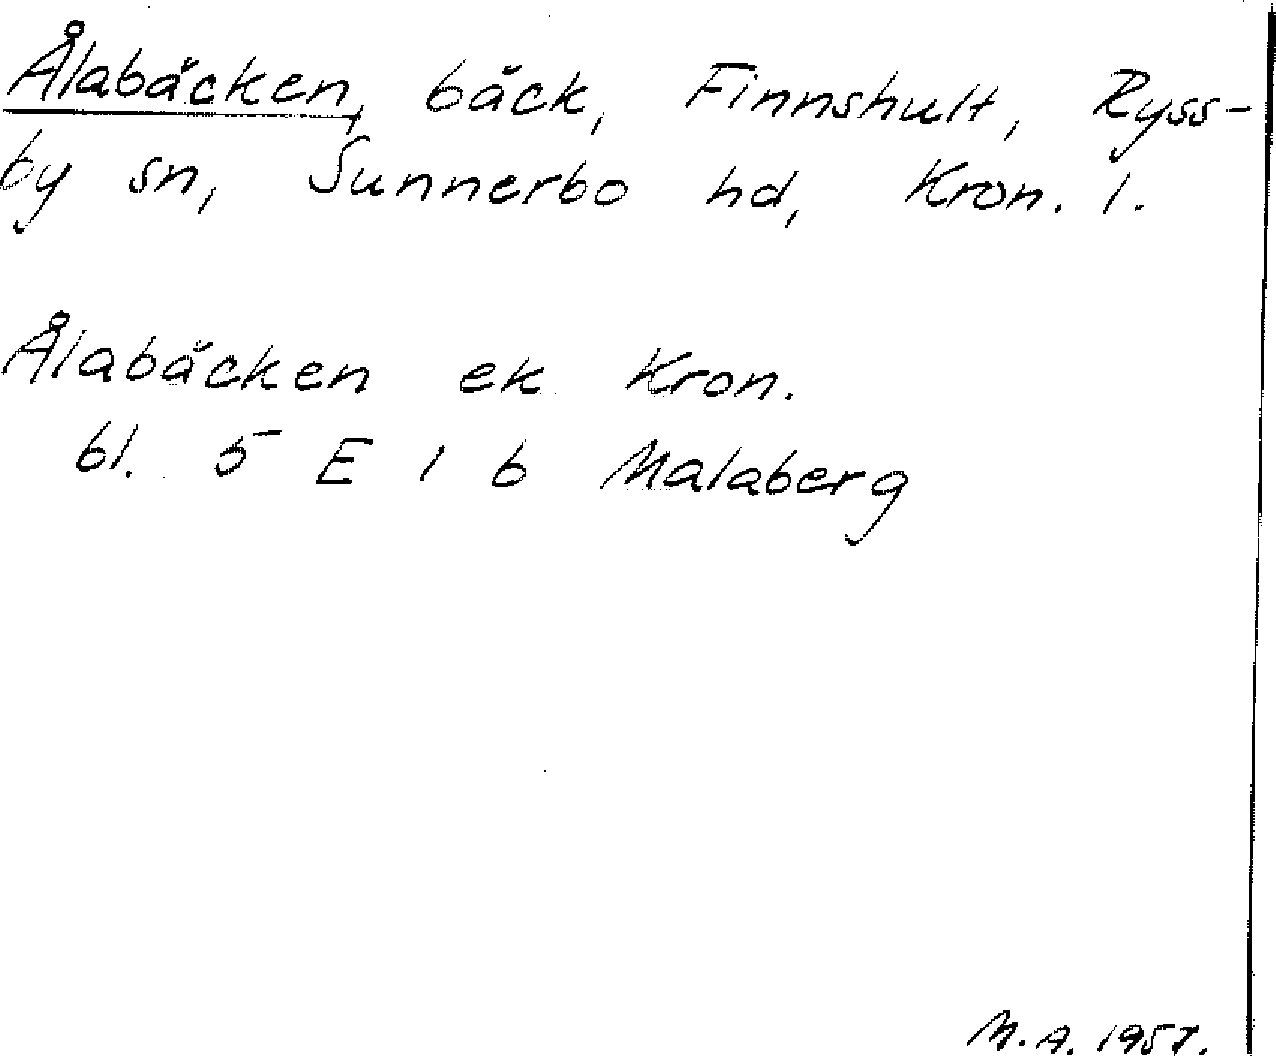 Ålabäcken, bäck, Finnshult, Ryss-
by sn, Sunnerbo hd, Kron. l.
Ålabäcken ek Kron.
bl. 5 E 1 b Malaberg
M.A. 1957.